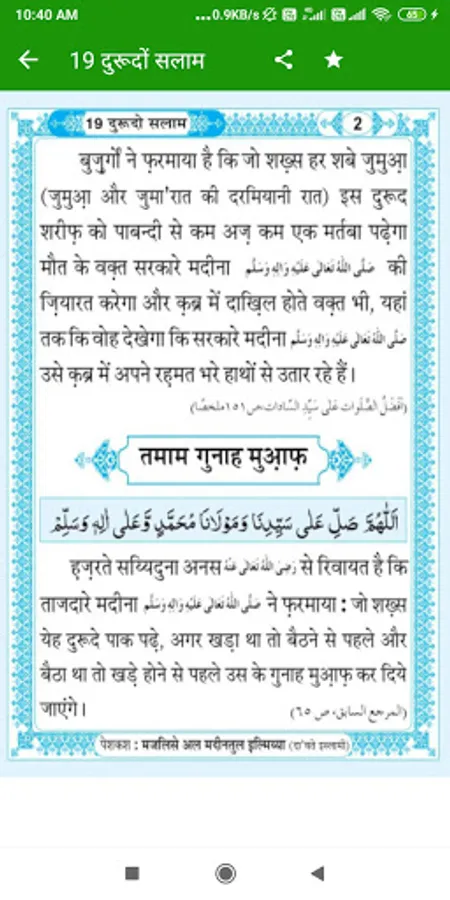 10:40 AM
...0.9KB/s
65
19 दुरूदों सलाम
19 दुरूदो सलाम
2
बुज़ुर्गों ने फ़रमाया है कि जो शख़्स हर शबे जुमुआ़
(जुमुआ़ और जुमा'रात की दरमियानी रात) इस दुरूद
शरीफ़ को पाबन्दी से कम अज़ कम एक मर्तबा पढ़ेगा
मौत के वक़्त सरकारे मदीना صَلَّى اللهُ تَعَالٰى عَلَيْهِ وَاٰلِهٖ وَسَلَّم की
ज़ियारत करेगा और क़ब्र में दाख़िल होते वक़्त भी, यहां
तक कि वोह देखेगा कि सरकारे मदीना صَلَّى اللهُ تَعَالٰى عَلَيْهِ وَاٰلِهٖ وَسَلَّم
उसे क़ब्र में अपने रह़मत भरे हाथों से उतार रहे हैं।
(اَفضَلُ الصَّلَوات عَلى سَيِّدِ السَّادات،ص١٥١ملخصًا)
तमाम गुनाह मुआ़फ़
اَللّٰهُمَّ صَلِّ عَلٰى سَيِّدِنَا وَمَوْلَانَا مُحَمَّدٍ وَّعَلٰى اٰلِهٖ وَسَلِّمْ
ह़ज़रते सय्यिदुना अनस رَضِىَ اللهُ تَعَالٰى عَنْهُ से रिवायत है कि
ताजदारे मदीना صَلَّى اللهُ تَعَالٰى عَلَيْهِ وَاٰلِهٖ وَسَلَّم ने फ़रमाया : जो शख़्स
येह दुरूदे पाक पढ़े, अगर खड़ा था तो बैठने से पहले और
बैठा था तो खड़े होने से पहले उस के गुनाह मुआ़फ़ कर दिये
जाएंगे।
(المرجع السابق، ص ٦٥)
पेशकश : मजलिसे अल मदीनतुल इल्मिय्या (दा'वते इस्लामी)